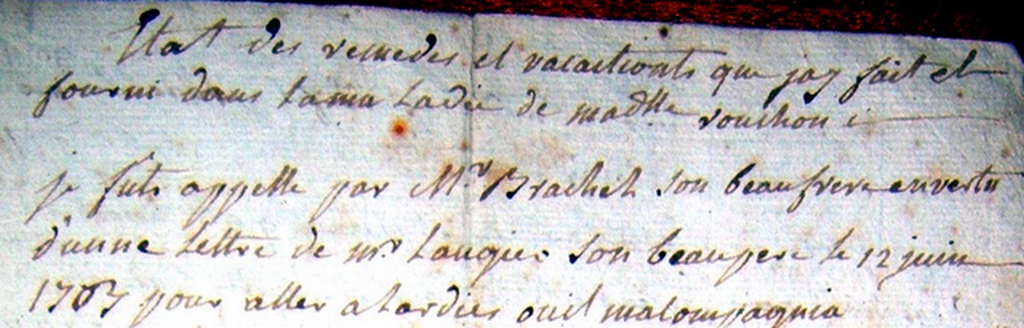 Etat des remedes et vacationts que jay fait et
fourni dans lama ladie de madlle rouchon
je futs appelle par Mr Brachet son beaufrere envertu
dunne lettre de mr laugier son beaupere le 12 juin
1767 pour aller alardies ouil macompagnia